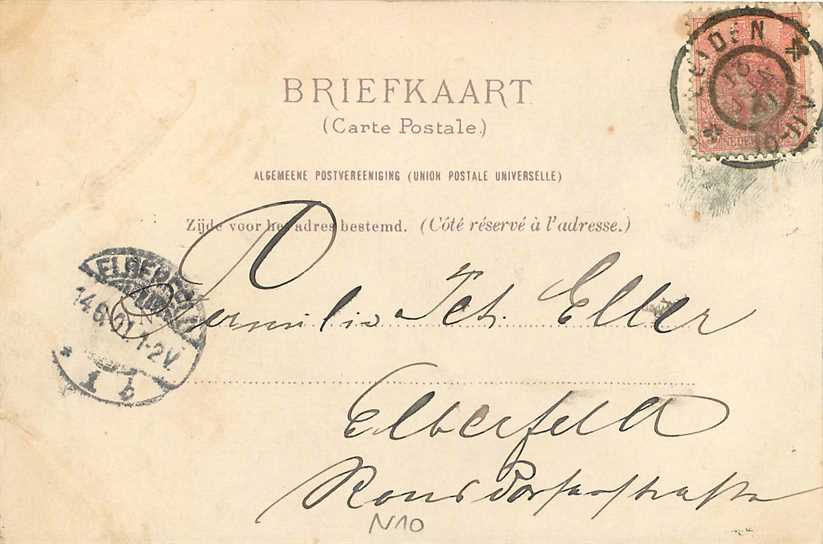 BRIEFKAART
(Carte Postale.)
ALGEMEENE POSTVEREENIGING (UNION POSTALE UNIVERSELLE)
Zijde voor het adres bestemd. (Côté réservé à l'adresse.)
LEIDEN
NEDER
ELBERFELD
14.6.01.1-2V.
1 b
Familie Eller
Elberfeldt
Ronsdorferstrasse
N10